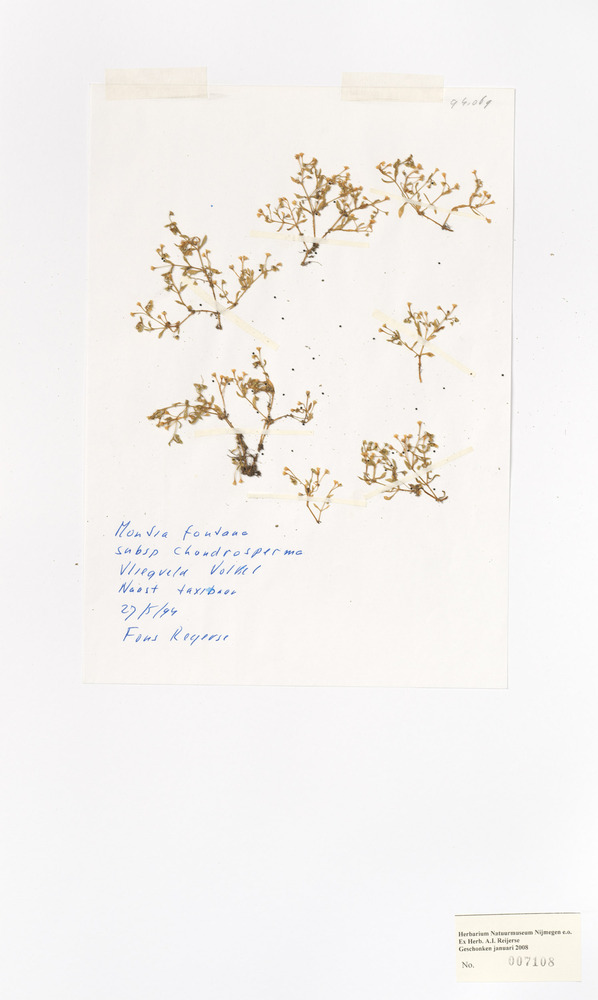 94.069
Montia fontana
subsp Chondrosperma
Vliegveld Volkel
Naast taxibaan
27/5/94
Fons Reijerse
Herbarium Natuurmuseum Nijmegen e.o.
Ex Herb. A.I. Reijerse
Geschonken januari 2008
No. 007108